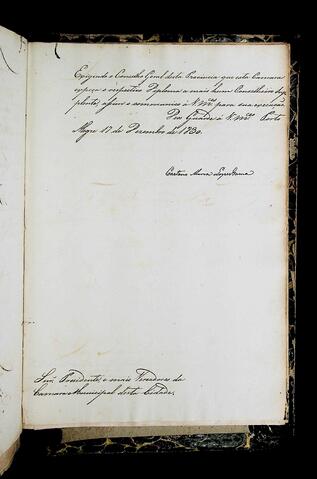 Exigindo o Conselho Geral desta Provincia que esta Camara
expeça o respectivo Diploma a mais hum Conselheiro Sup
plente, assim o communico á V. M.ces para sua execução.
Deos Guarde á V. M.ces Porto
Alegre 17 de Dezembro de 1830.
Caetano Maria Lopes Gama
Snr.es Presidente, e mais Vereadores da
Camara Municipal desta Cidade.